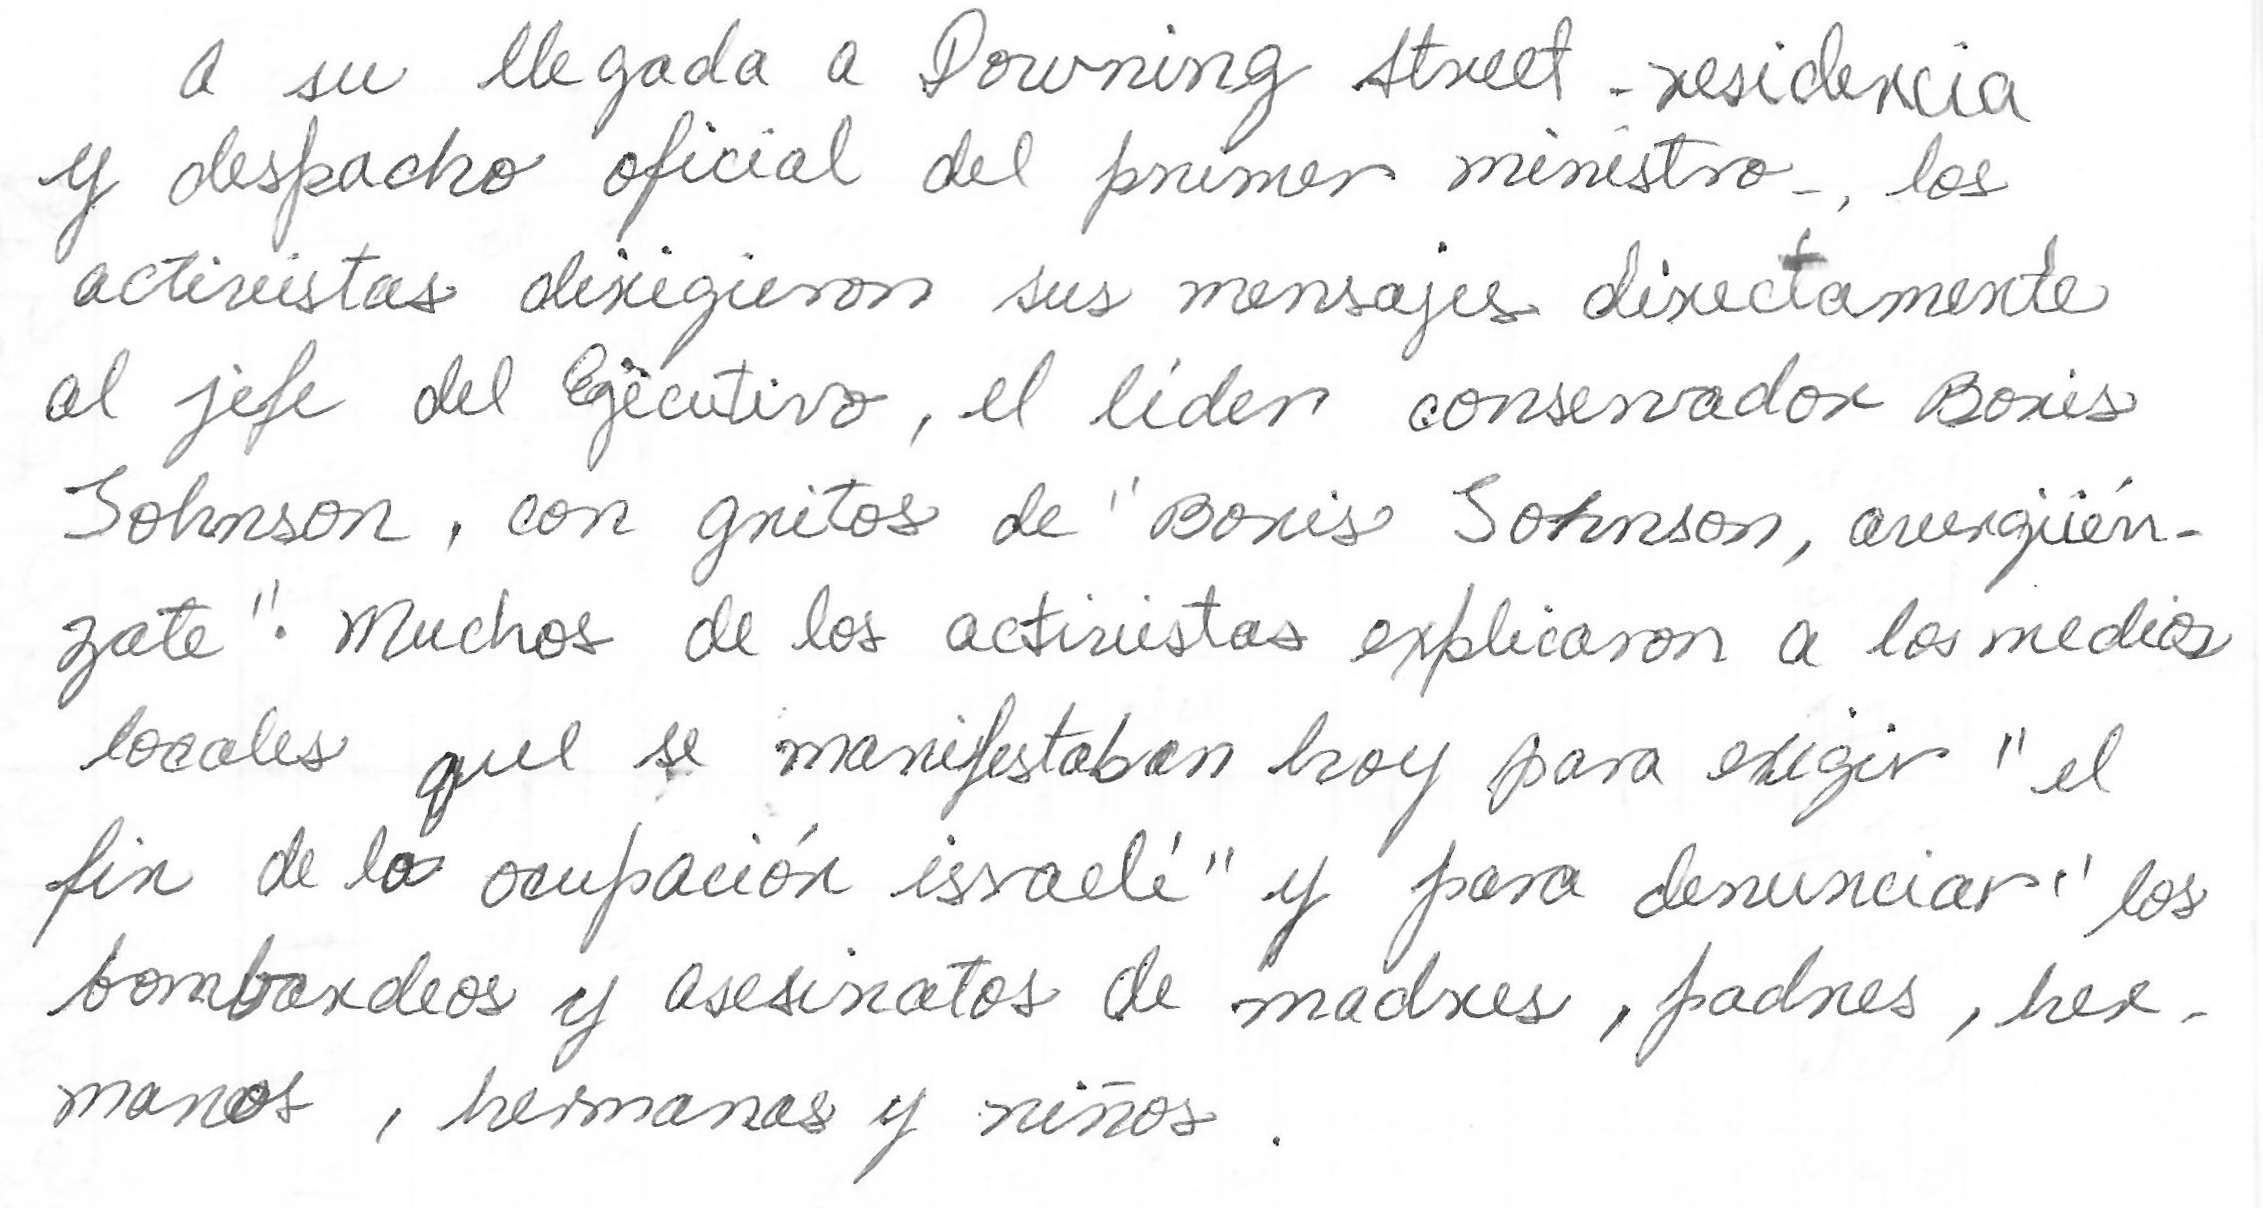 A su llegada a Downing Street -residencia
y despacho oficial del primer ministro-, los
activistas dirigieron sus mensajes directamente
al jefe del Ejecutivo, el líder conservador Boris
Johnson, con gritos de "Boris Johnson, avergüén-
zate". Muchos de los activistas explicaron a los medios
locales que se manifestaban hoy para exigir "el
fin de la ocupación israelí" y para denunciar "los
bombardeos y asesinatos de madres, padres, her-
manos, hermanas y niños.